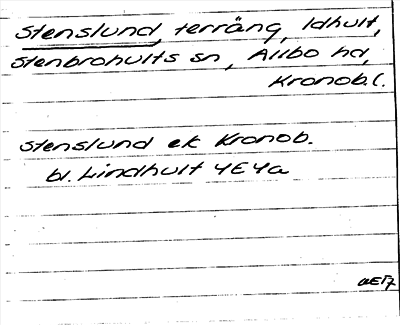 Stenslund, terräng, Idhult,
Stenbrohults sn, Allbo hd,
Kronob. l.
Stenslund ek Kronob.
bl. Lindhult 4E4a